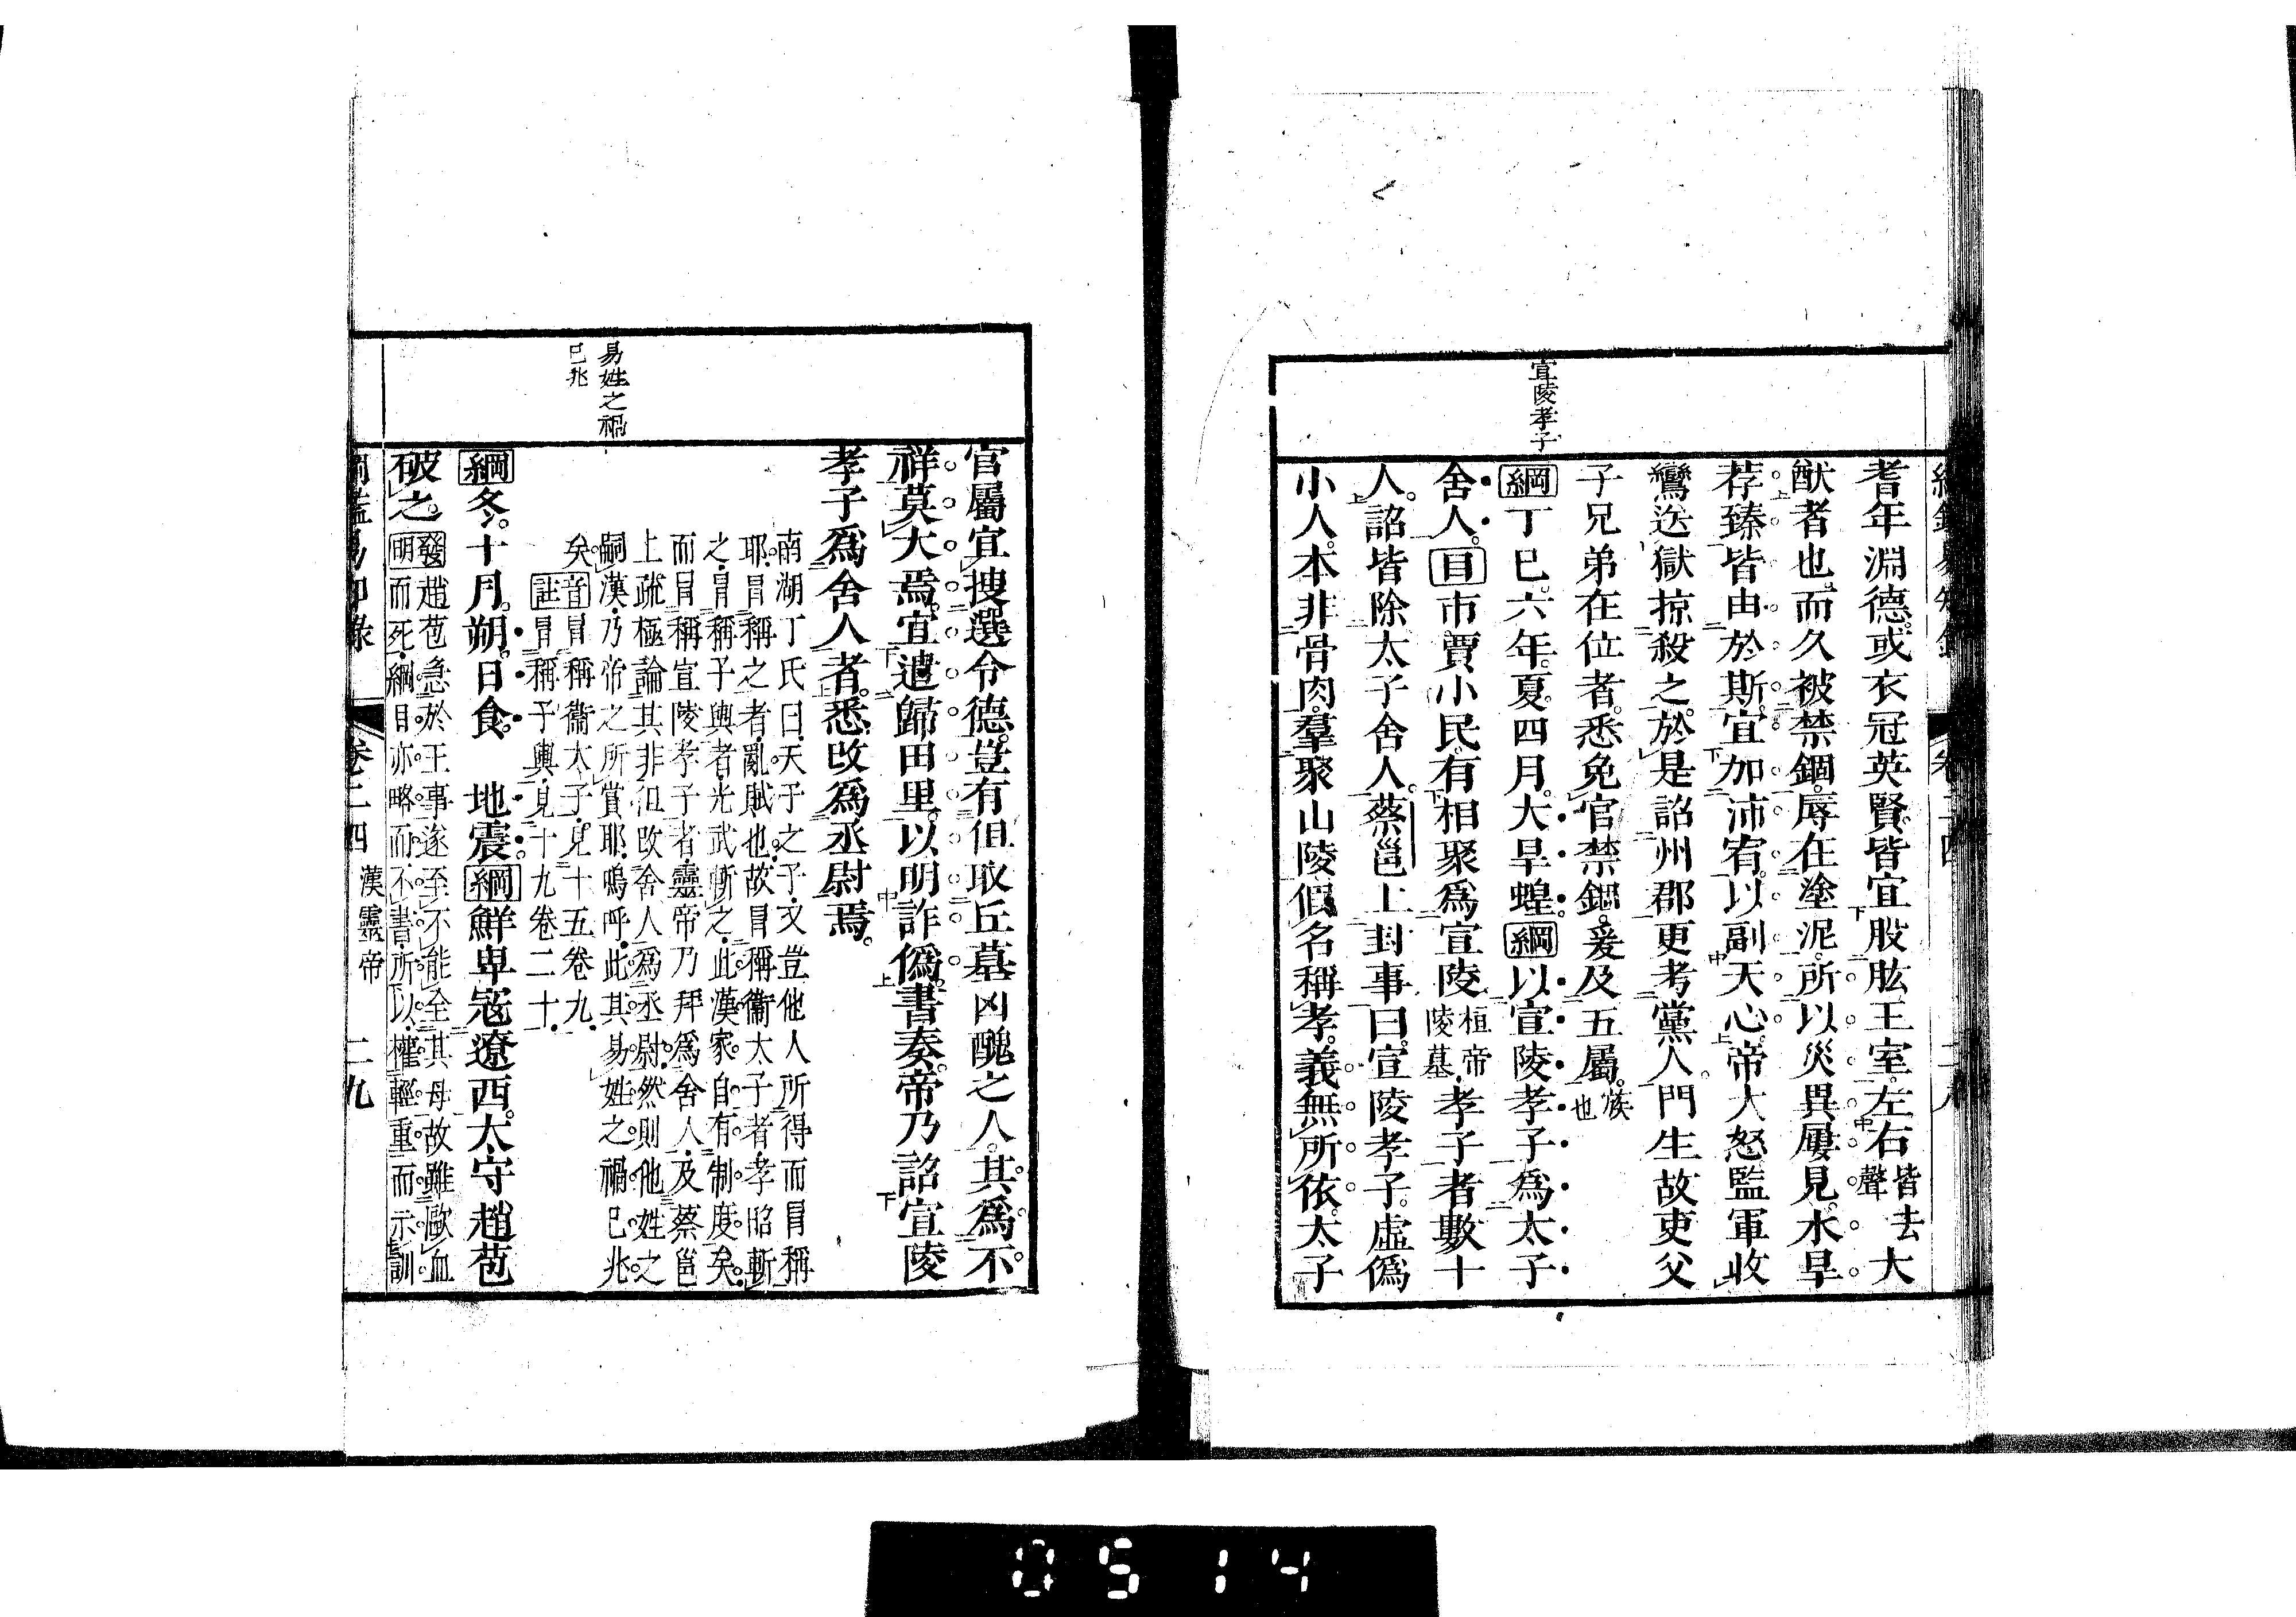 宣陵孝子
耆年淵德。或衣冠英賢。皆宜股肱王室。左右皆去聲大
猷者也。而久被禁錮。辱在塗泥。所以災異屢見。水旱
荐臻。皆由於斯。宜加沛宥。以副天心。帝大怒。監軍收
鸞送獄掠殺之。於是詔州郡更考黨人門生故吏父
子兄弟在位者。悉免官禁錮。爰及五屬。族也
綱丁巳。六年。夏。四月。大旱蝗。綱以宣陵孝子爲太子
舍人。目市賈小民。有相聚爲宣陵桓帝陵墓孝子者數十
人。詔皆除太子舍人。蔡邕上封事曰。宣陵孝子。虛僞
小人。本非骨肉。羣聚山陵。假名稱孝。義無所依。太子
易姓之禍
已兆
官屬。宜搜選令德。豈有但取丘墓凶醜之人。其爲不
祥莫大焉。宜遣歸田里。以明詐僞。書奏。帝乃詔宣陵
孝子爲舍人者。悉改爲丞尉焉。
南湖丁氏曰。天子之子。又豈他人所得而冒稱
耶。冒稱之者。亂賊也。故冒稱衞太子者。孝昭斬
之。冒稱子輿者。光武斬之。此漢家自有制度矣。
而冒稱宣陵孝子者。靈帝乃拜爲舍人。及蔡邕
上疏極論其非。但改舍人爲丞尉。然則他姓之
嗣漢。乃帝之所賞耶。嗚呼。此其易姓之禍已兆
矣。音冒稱衞太子。見十五卷九。
註冒稱子輿。見十九卷二十。
綱冬。十月朔。日食。　地震。綱鮮卑寇遼西。太守趙苞
破之。發明趙苞急於王事。遂至不能全其母。故雖歐血
而死。綱目亦略而不書。所以權輕重而示訓
卷二四　漢靈帝　二九
0514